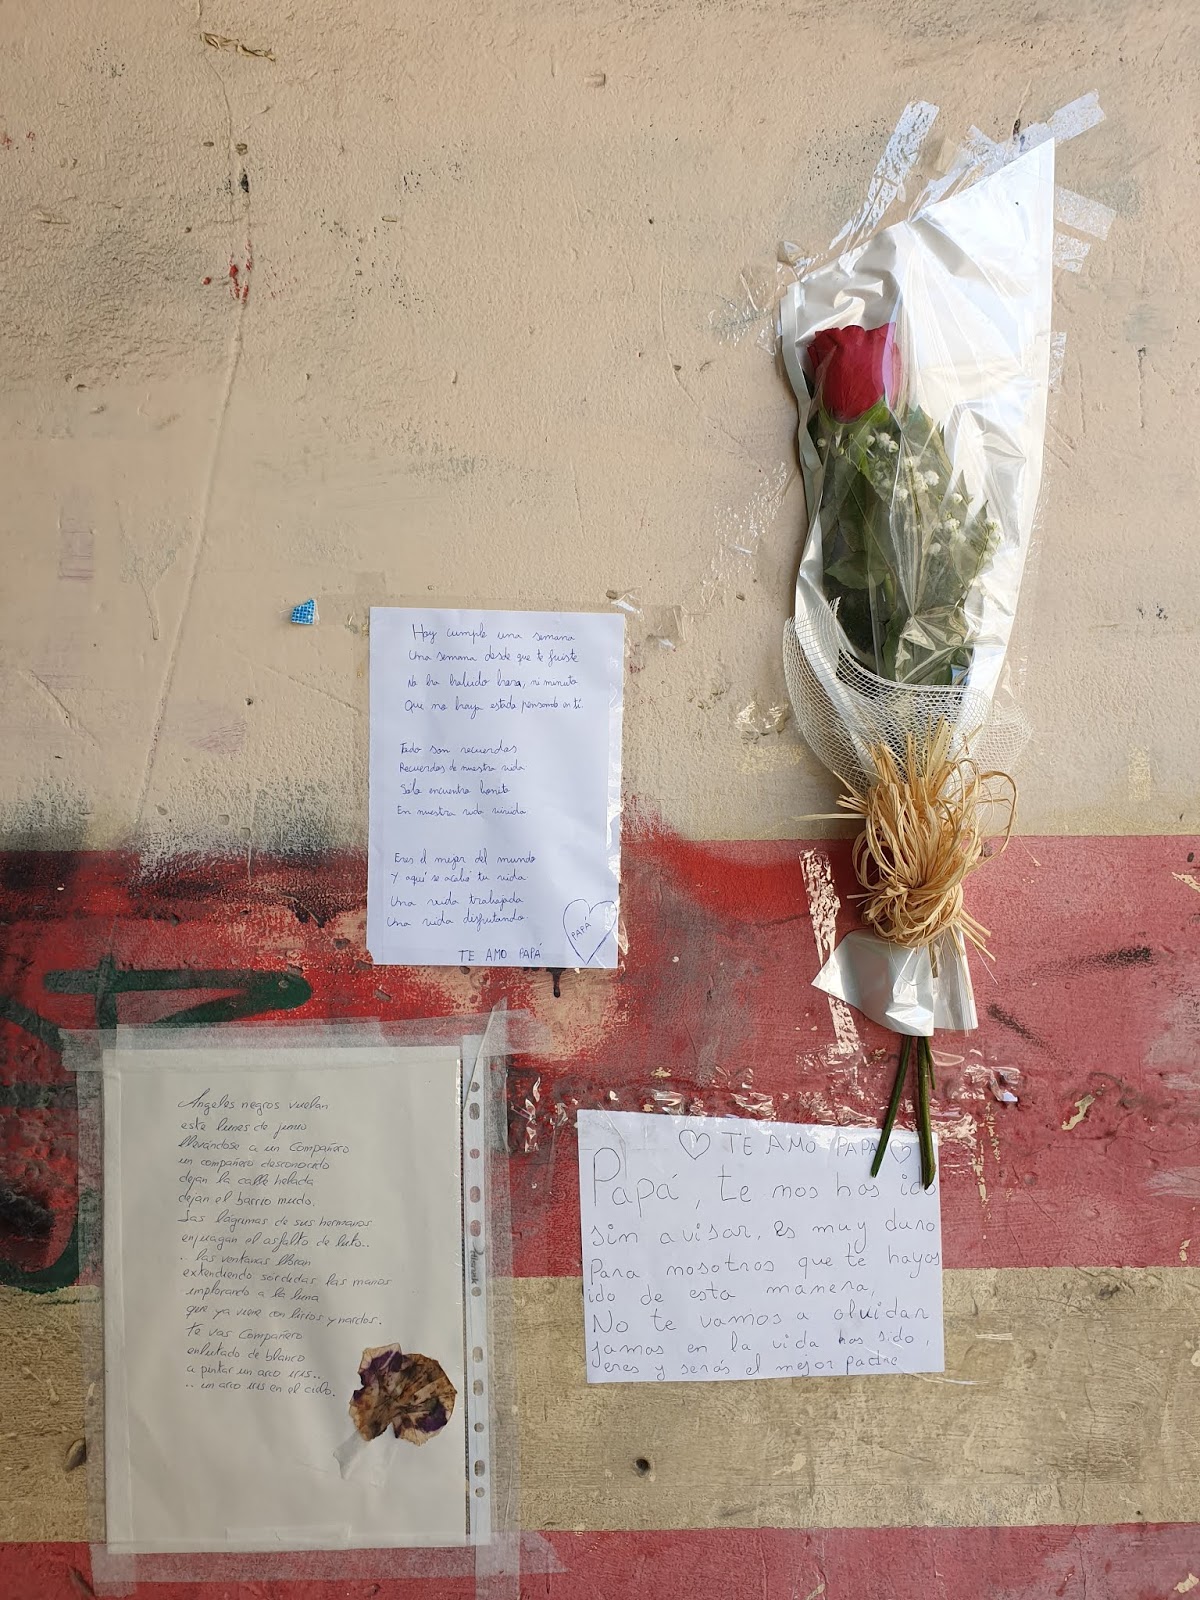 Hoy cumple una semana
Una semana desde que te fuiste
No ha habido hora, ni minuto
Que no haya estado pensando en ti.
Todo son recuerdos
Recuerdos de nuestra vida
Sólo encuentro bonito
En nuestra vida vivida
Eres el mejor del mundo
Y aquí se acabó tu vida
Una vida trabajada
Una vida disfrutando
PAPÁ
TE AMO PAPÁ
Angeles negros vuelan
este lunes de junio
llevándose a un Compañero
un compañero desconocido
dejan la calle helada
dejan el barrio mudo.
Las lágrimas de sus hermanos
enjuagan el asfalto de luto..
.. las ventanas lloran
extendiendo sórdidas las manos
implorando a la luna
que ya viene con lirios y nardos.
te vas Compañero
enlutado de blanco
a pintar un arco iris..
.. un arco iris en el cielo.
TE AMO PAPA
Papá, te nos has ido
sin avisar, es muy duro
Para nosotros que te hayas
ido de esta manera,
No te vamos a olvidar
jamas en la vida has sido,
eres y serás el mejor padre